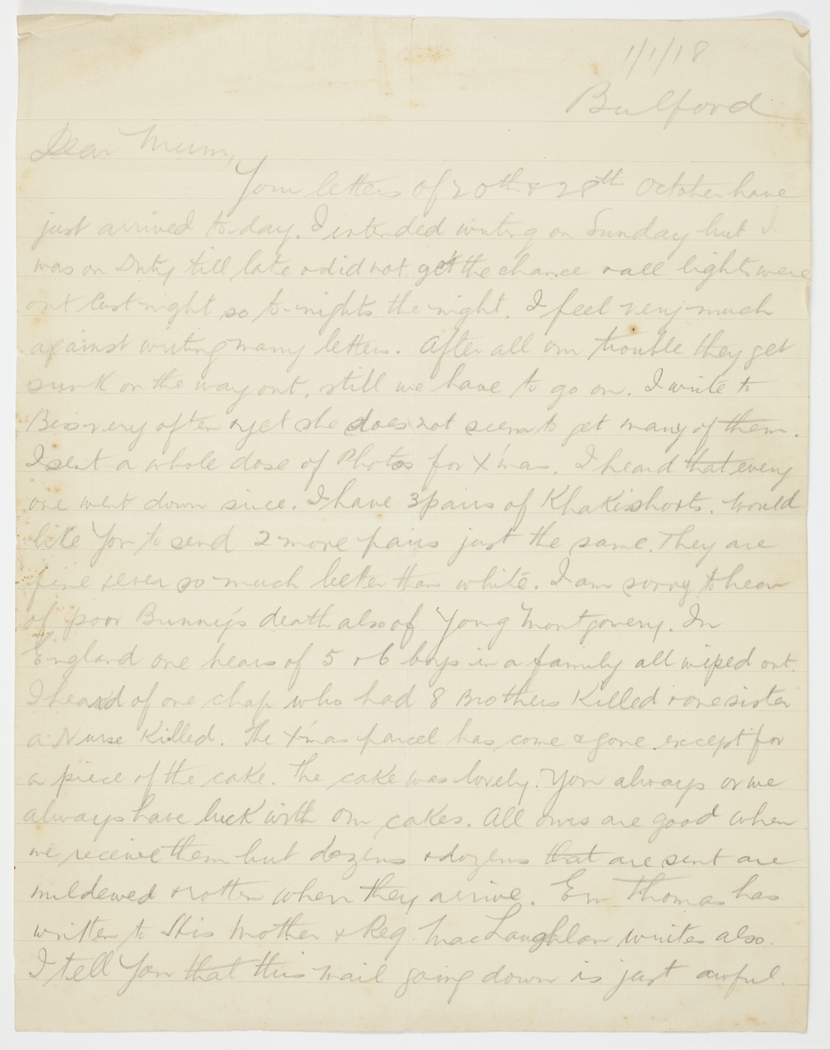 1/1/18
Bulford
Dear Mum,
Your letters of 20th & 28th October have
just arrived to-day. I intended writing on Sunday but I
was on Duty till late & did not get the chance & all lights were
out last night so to-nights the night. I feel very much
against writing many letters. After all our trouble they get
sunk on the way out, still we have to go on. I write to
Bess very often & yet she does not seem to get many of them.
I sent a whole dose of Photos for X'mas. I heard that every
one went down since. I have 3 pairs of Khaki shorts. Would
like You to send 2 more pairs just the same. They are
fine & ever so much better than white. I am sorry to hear
of poor Bunny's death also of Yong Montgomery. In
England one hears of 5 or 6 boys in a family all wiped out.
I heard of one chap who had 8 Brothers Killed & one sister
a Nurse Killed. The X'mas parcel has come & gone except for
a piece of the cake. The cake was lovely. You always or we
always have luck with our cakes. All ours are good when
we receive them but dozens & dozens that are sent are
mildewed & rotten when they arrive. Thomas has
written to His Mother & Reg MacLaughlan writes also.
I tell You that this mail going down is just awful.